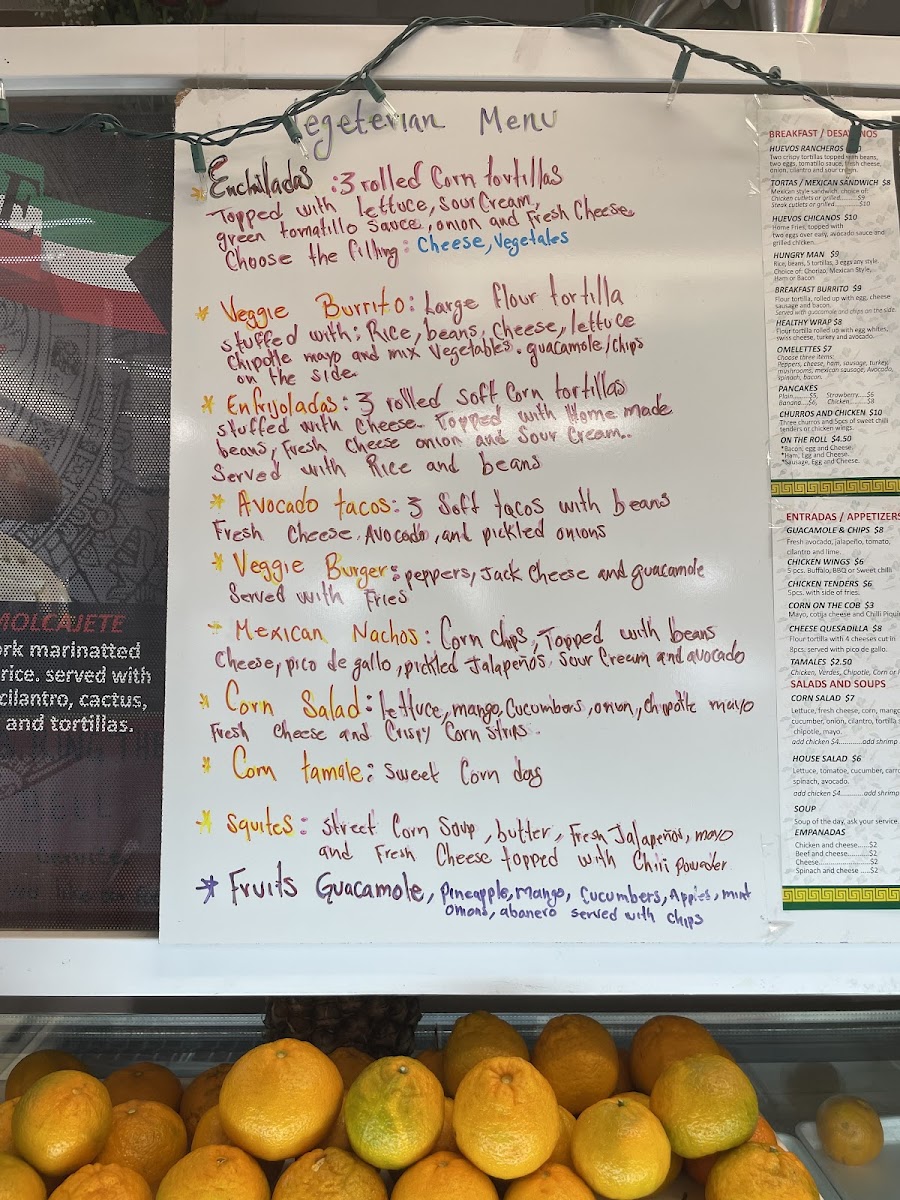 egeterian Menu
* Enchiladas : 3 rolled Corn tortillas
Topped with lettuce, Sour Cream,
green tomatillo Sauce, onion and Fresh Cheese
Choose the filling: Cheese, Vegetales
* Veggie Burrito: Large flour tortilla
stuffed with; Rice, beans, Cheese, lettuce
Chipotle mayo and mix Vegetables. guacamole/chips
on the side.
* Enfrijoladas: 3 rolled Soft Corn tortillas
stuffed with Cheese. Topped with Home made
beans, Fresh Cheese onion and Sour Cream.
Served with Rice and beans
* Avocado tacos: 3 Soft tacos with beans
Fresh Cheese, Avocado, and pickled onions
* Veggie Burger: peppers, Jack Cheese and guacamole
Served with Fries
* Mexican Nachos: Corn chips, Topped with beans
Cheese, pico de gallo, pickled Jalapeños, Sour Cream and avocado
* Corn Salad: lettuce, mango, Cucumbers, onion, chipotle mayo
Fresh Cheese and Crispy Corn strips.
* Corn tamale: Sweet Corn day
* Squites: Street Corn Soup, butter, Fresh Jalapeños, mayo
and Fresh Cheese topped with Chili Powder
* Fruits Guacamole, Pineapple, Mango, Cucumbers, Apples, mint
onions, abanero served with chips
MOLCAJETE
ork marinatted
rice. served with
cilantro, cactus,
and tortillas.
BREAKFAST / DESAYUNOS
HUEVOS RANCHEROS
Two crispy tortillas topped with beans,
two eggs, tomatillo sauce, fresh cheese,
onion, cilantro and sour cream.
TORTAS / MEXICAN SANDWICH $8
Mexican style sandwich, choice of:
Chicken cutlets or grilled.......$9
Steak cutlets or grilled..........$10
HUEVOS CHICANOS $10
Home Fries, topped with
two eggs over easy, avocado sauce and
grilled chicken.
HUNGRY MAN $9
Rice, beans, 5 tortillas, 3 eggs any style.
Choice of: Chorizo, Mexican Style,
Ham or Bacon
BREAKFAST BURRITO $9
Flour tortilla, rolled up with egg, cheese
sausage and bacon.
Served with guacamole and chips on the side.
HEALTHY WRAP $8
Flour tortilla rolled up with egg whites,
swiss cheese, turkey and avocado.
OMELETTES $7
Choose three items:
Peppers, cheese, ham, sausage, turkey,
mushrooms, mexican sausage, Avocado,
spinach, bacon.
PANCAKES
Plain.......$5, Strawberry....$6
Banana...$6, Chicken........$8
CHURROS AND CHICKEN $10
Three churros and 5pcs of sweet chili
tenders or chicken wings.
ON THE ROLL $4.50
*Bacon, egg and Cheese.
*Ham, Egg and Cheese.
*Sausage, Egg and Cheese.
ENTRADAS / APPETIZERS
GUACAMOLE & CHIPS $8
Fresh avocado, jalapeño, tomato,
cilantro and lime.
CHICKEN WINGS $6
5 pcs. Buffalo, BBQ or Sweet chilli
CHICKEN TENDERS $6
5pcs. with side of fries.
CORN ON THE COB $3
Mayo, cotija cheese and Chilli Piquin
CHEESE QUESADILLA $8
Flour tortilla with 4 cheeses cut in
8pcs. served with pico de gallo.
TAMALES $2.50
Chicken, Verdes, Chipotle, Corn or
SALADS AND SOUPS
CORN SALAD $7
Lettuce, fresh cheese, corn, mango
cucumber, onion, cilantro, tortilla
chipotle, mayo.
add chicken $4...........add shrimp
HOUSE SALAD $6
Lettuce, tomatoe, cucumber, carro
spinach, avocado.
add chicken $4...........add shrimp
SOUP
Soup of the day, ask your service.
EMPANADAS
Chicken and cheese.....$2
Beef and cheese..........$2
Cheese.........................$2
Spinach and cheese .....$2